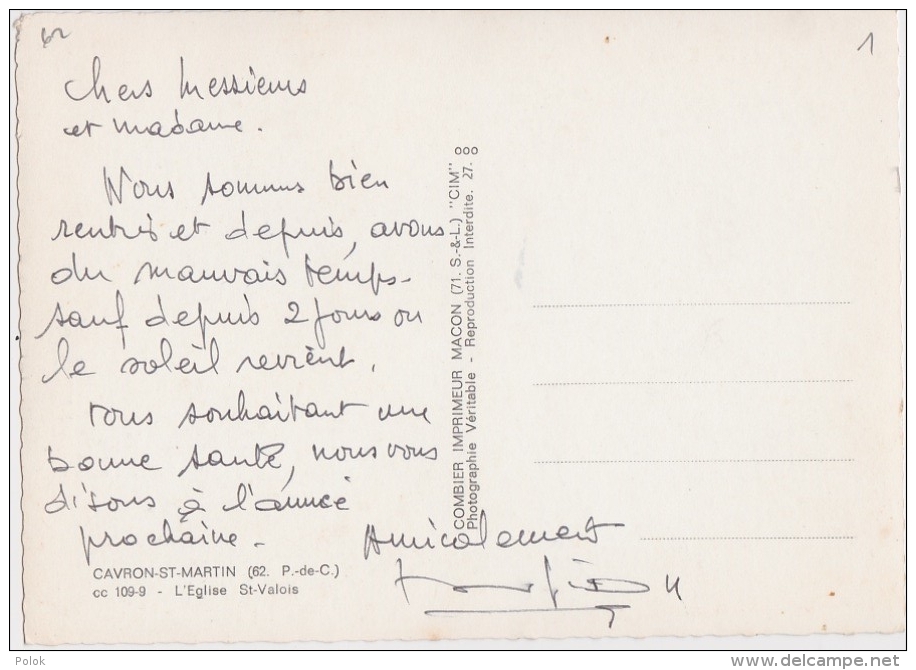 62
1
Chers Messieurs
et madame.
Nous sommes bien
rentrés et depuis, avons
du mauvais temps-
sauf depuis 2 jours ou
le soleil revient.
Vous souhaitant une
bonne santé, nous vous
disons à l'année
prochaine.
Amicalement
CAVRON-ST-MARTIN (62. P.-de-C.)
cc 109-9 - L'Eglise St-Valois
COMBIER IMPRIMEUR MACON (71. S.-&-L.) "CIM"
Photographie Véritable - Reproduction Interdite. 27.
Polok
www.delcampe.net